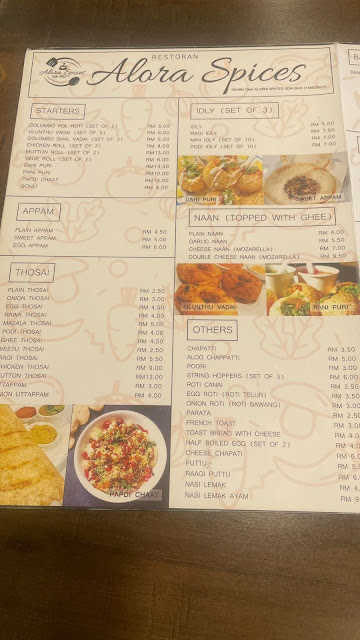 RESTORAN
Alora Spices
Alora Spices
STARTERS
COLOMBO POL ROTI (SET OF 2) RM 6.00
ULUNTHU VADAI (SET OF 3) RM 6.00
COLOMBO DHAL VADAI (SET OF 3)
CHICKEN ROLL (SET OF 2)
MUTTON ROLL (SET OF 2)
VEGE ROLL (SET OF 2)
DAHI PURI
PANI PURI
PAPDI CHAAT
APPAM
PLAIN APPAM RM 4.50
SWEET APPAM RM 5.00
EGG APPAM RM 6.00
THOSAI
PLAIN THOSAI RM 2.50
ONION THOSAI RM 3.00
EGG THOSAI RM 4.50
RAWA THOSAI RM 4.00
MASALA THOSAI RM 5.00
PODI THOSAI RM 4.00
GHEE THOSAI RM 4.50
VEETU THOSAI RM 2.50
RAGI THOSAI RM 5.50
CHICKEN THOSAI RM 9.00
UTTON THOSAI RM12.00
TTAPPAM RM 3.00
NION UTTAPPAM RM 4.00
PAPDI CHAAT
IDLY (SET OF 3)
IDLY RM 5.00
RAGI IDLY RM 7.50
MINI IDLY (SET OF 10) RM 7.00
PODI IDLY (SET OF 10) RM 7.50
DAHI PURI
SWEET APPAM
NAAN (TOPPED WITH GHEE)
PLAIN NAAN RM 4.00
GARLIC NAAN RM 5.50
CHEESE NAAN (MOZARELLA) RM 7.00
DOUBLE CHEESE NAAN (MOZARELLA) RM 9.50
ULUNTHU VADAI
PANI PURI
OTHERS
CHAPATTI RM 3.50
ALOO CHAPPATTI RM 5.50
POORI RM 3.00
STRING HOPPERS (SET OF 3) RM 6.00
ROTI CANAI RM 2.50
EGG ROTI (ROTI TELUR) RM 3.50
ONION ROTI (ROTI BAWANG) RM 3.00
PARATA RM 2.50
FRENCH TOAST
TOAST BREAD WITH CHEESE
HALF BOILED EGG (SET OF 2)
CHEESE CHAPATI
PUTTU
RAAGI PUTTU
NASI LEMAK
NASI LEMAK AYAM